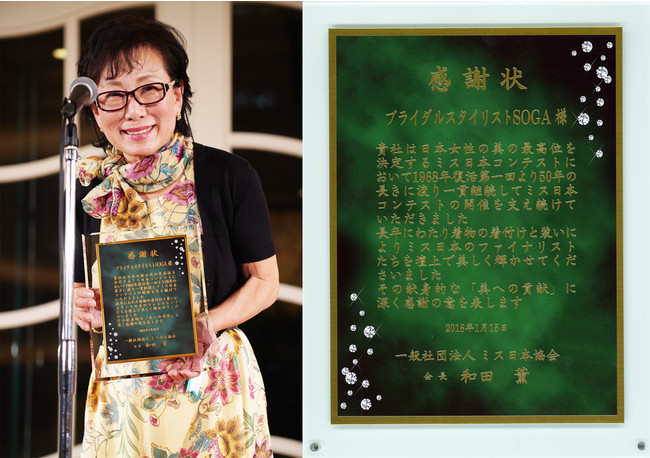 感謝状
ブライダルスタイリストSOGA 様
貴社は日本女性の美の最高位を
決定するミス日本コンテストに
おいて1968年復活第一回より50年の
長きに渡り一貫継続してミス日本
コンテストの開催を支え続けて
いただきました
長年にわたり着物の着付けと装いに
よりミス日本のファイナリスト
たちを壇上で美しく輝かせてくだ
さいました
その献身的な「美への貢献」に
深く感謝の意を表します
2018年1月15日
一般社団法人 ミス日本協会
会長 和田 薫
感謝状
ブライダルスタイリストSOGA 様